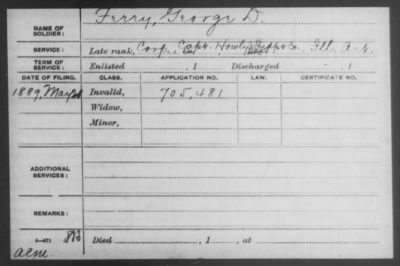 NAME OF SOLDIER: Ferry, George D.
SERVICE: Late rank, Corp., Capt. Co. Ill.
TERM OF SERVICE: Enlisted , 1 Discharged , 1
DATE OF FILING. CLASS. APPLICATION NO. LAW. CERTIFICATE NO.
1889, May Invalid, 705,481
Widow,
Minor,
ADDITIONAL SERVICES:
REMARKS:
Died , 1 , at